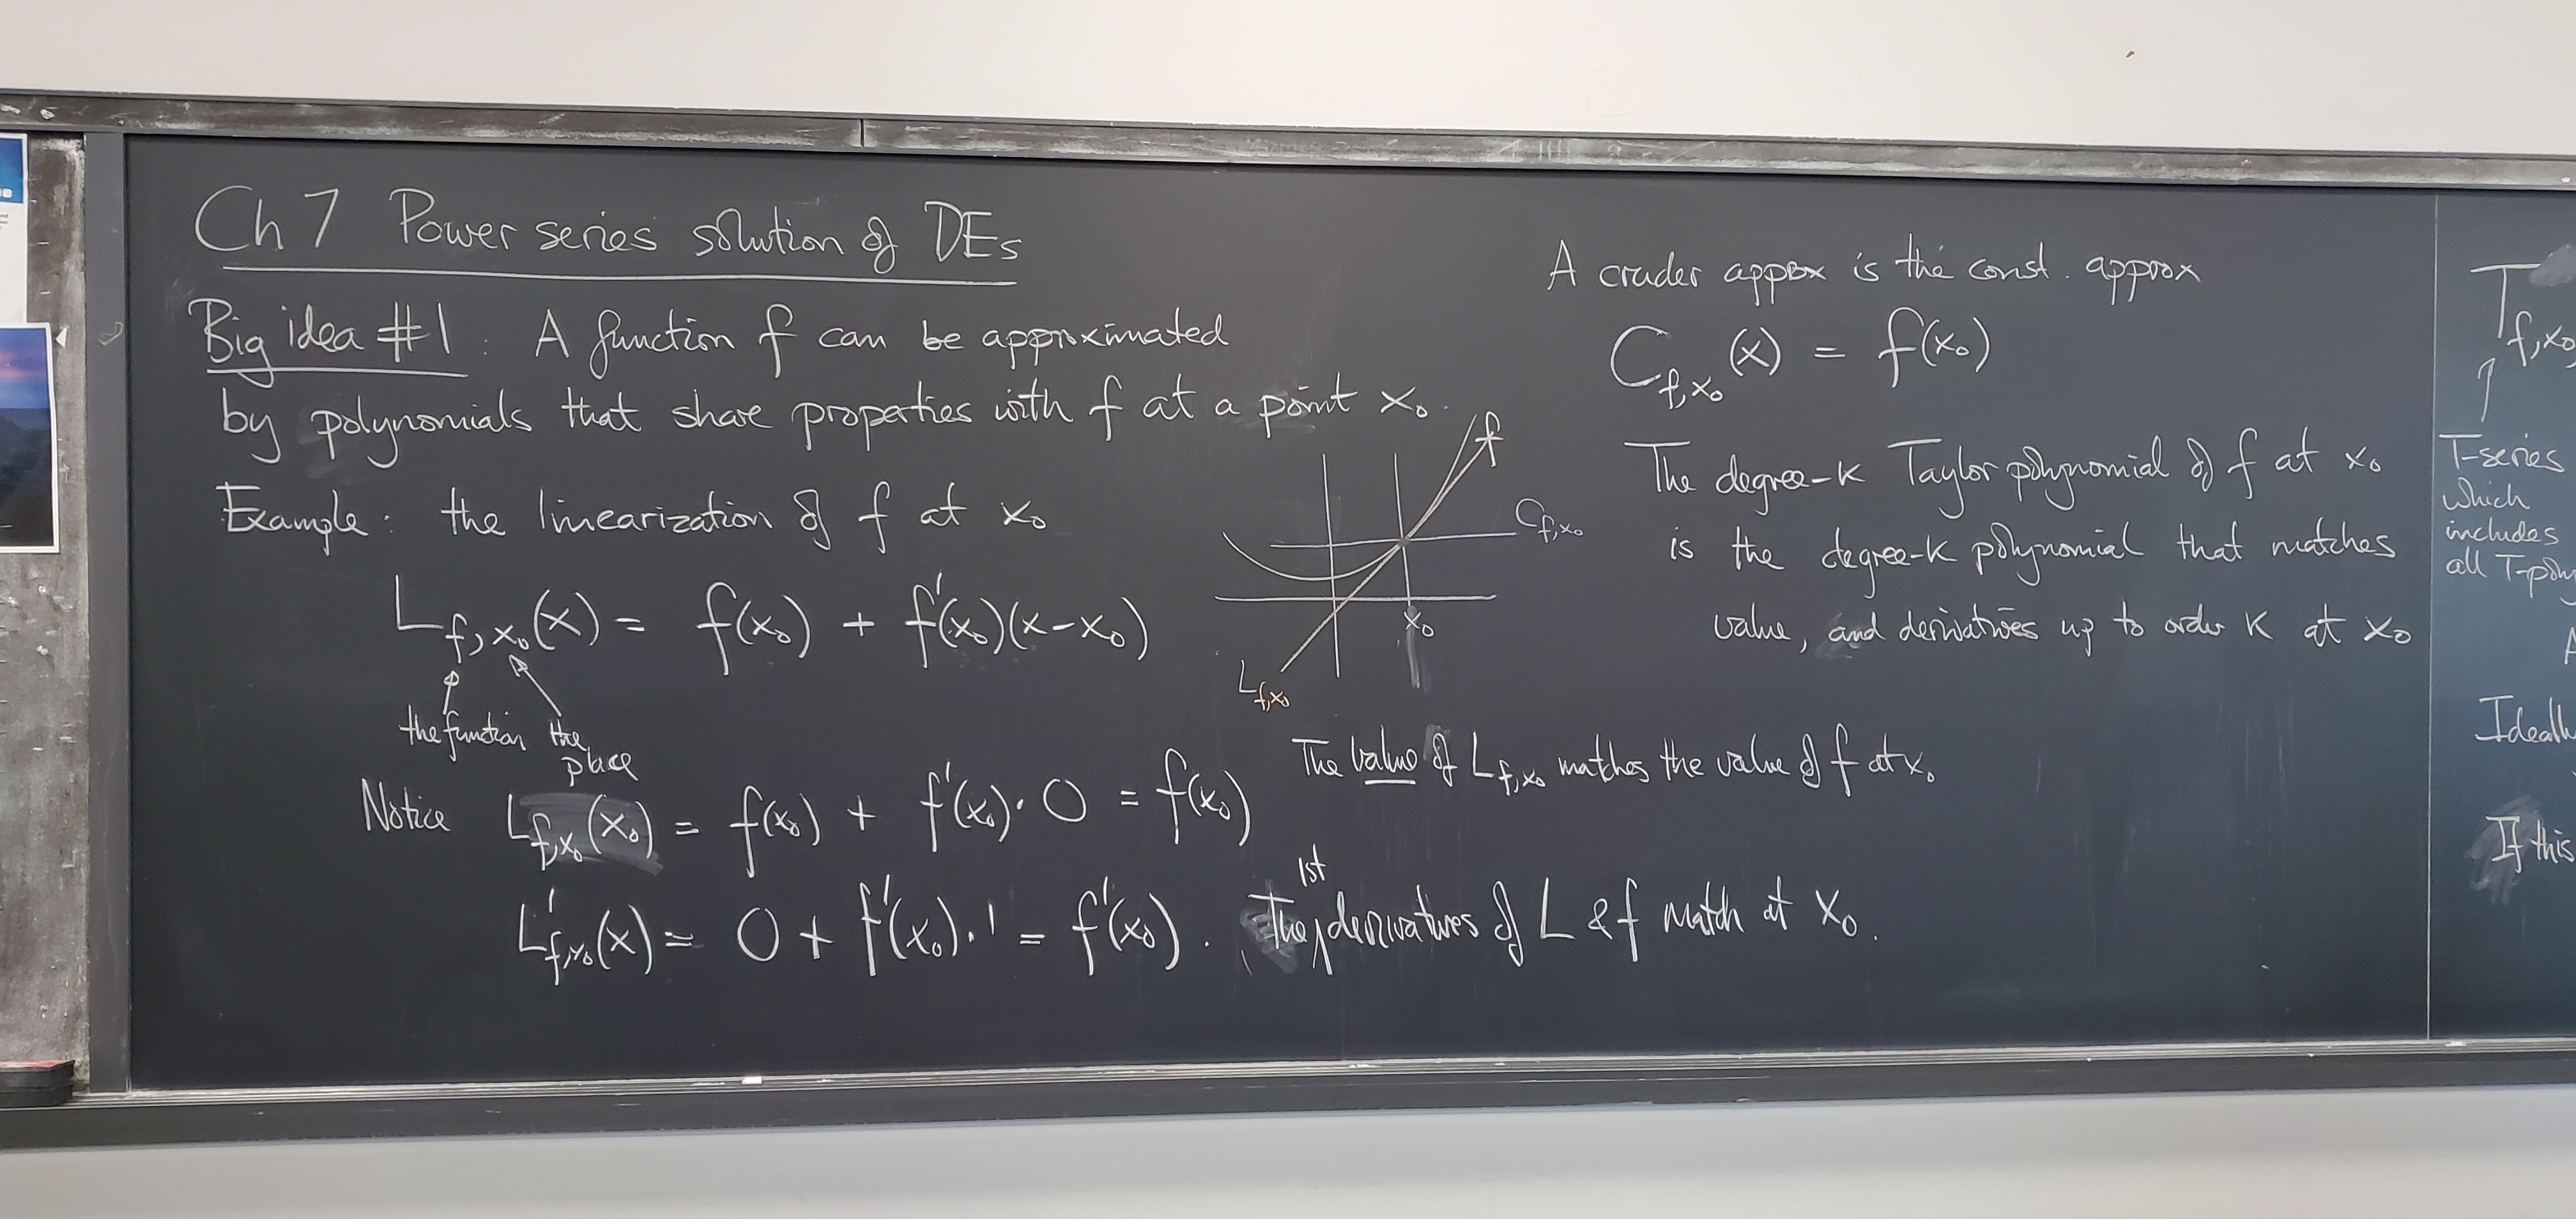 Ch 7 Power series solution of DEs
Big idea #1: A function f can be approximated
by polynomials that share properties with f at a point x₀.
Example: the linearization of f at x₀
L_{f,x₀}(x) = f(x₀) + f'(x₀)(x-x₀)
the function the place
Notice L_{f,x₀}(x₀) = f(x₀) + f'(x₀)·0 = f(x₀)
The value of L_{f,x₀} mathes the value of f at x₀
L'_{f,x₀}(x) = 0 + f'(x₀)·1 = f'(x₀).
The 1st derivatives of L & f match at x₀.
f
C_{f,x₀}
x₀
L_{f,x₀}
A cruder approx is the const. approx
C_{f,x₀}(x) = f(x₀)
The degree-k Taylor polynomial of f at x₀
is the degree-k polynomial that matches
value, and derivatives up to order k at x₀
T_{f,x₀}
T-series
which
includes
all T-poly
If this